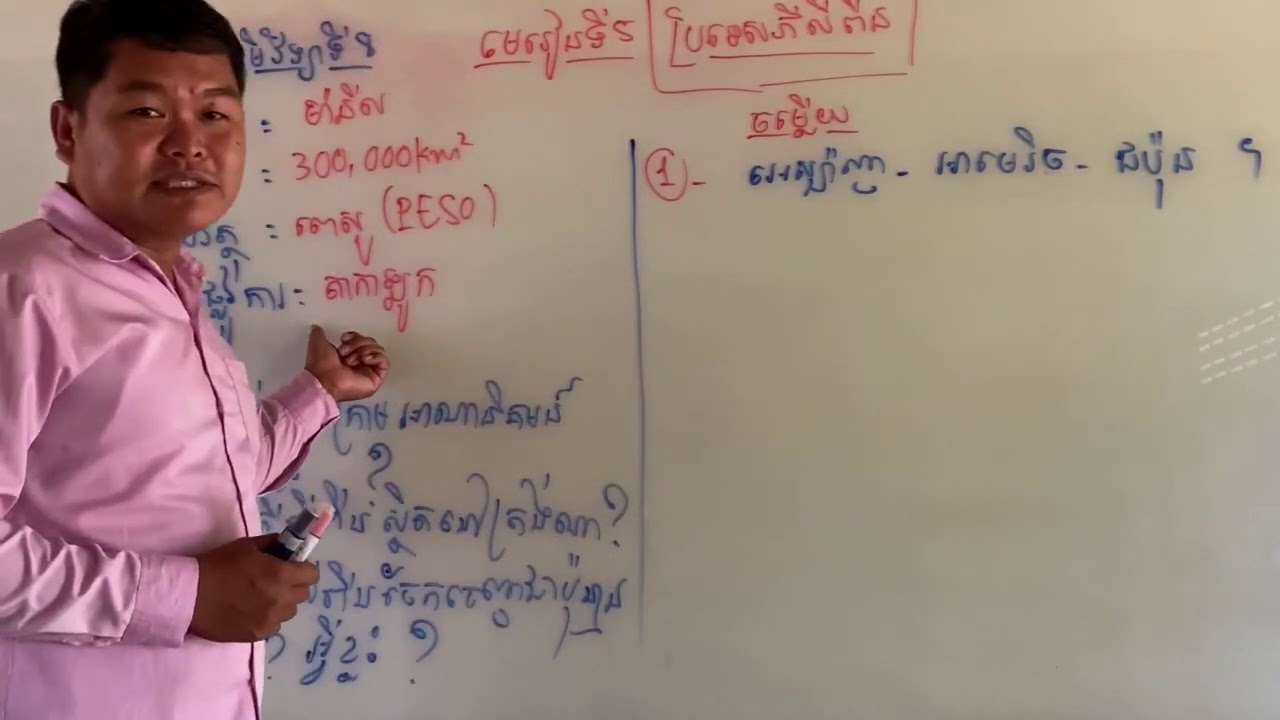 មិវិទ្យាទី១ មេរៀនទី៥ ប្រទេសភីលីពីន
: ម៉ានីល
: 300,000km²
វត្ថុ : ពេសូ (PESO)
ផ្លូវការ : តាកាឡុក
ក្រោម អាណានិគមន៍
?
ស្ថិតនៅត្រង់ណា?
ចែកចេញជាប៉ុន្មាន
? អ្វីខ្លះ ?
ចម្លើយ
1 - អេស្ប៉ាញ - អាមេរិច - ជប៉ុន ។